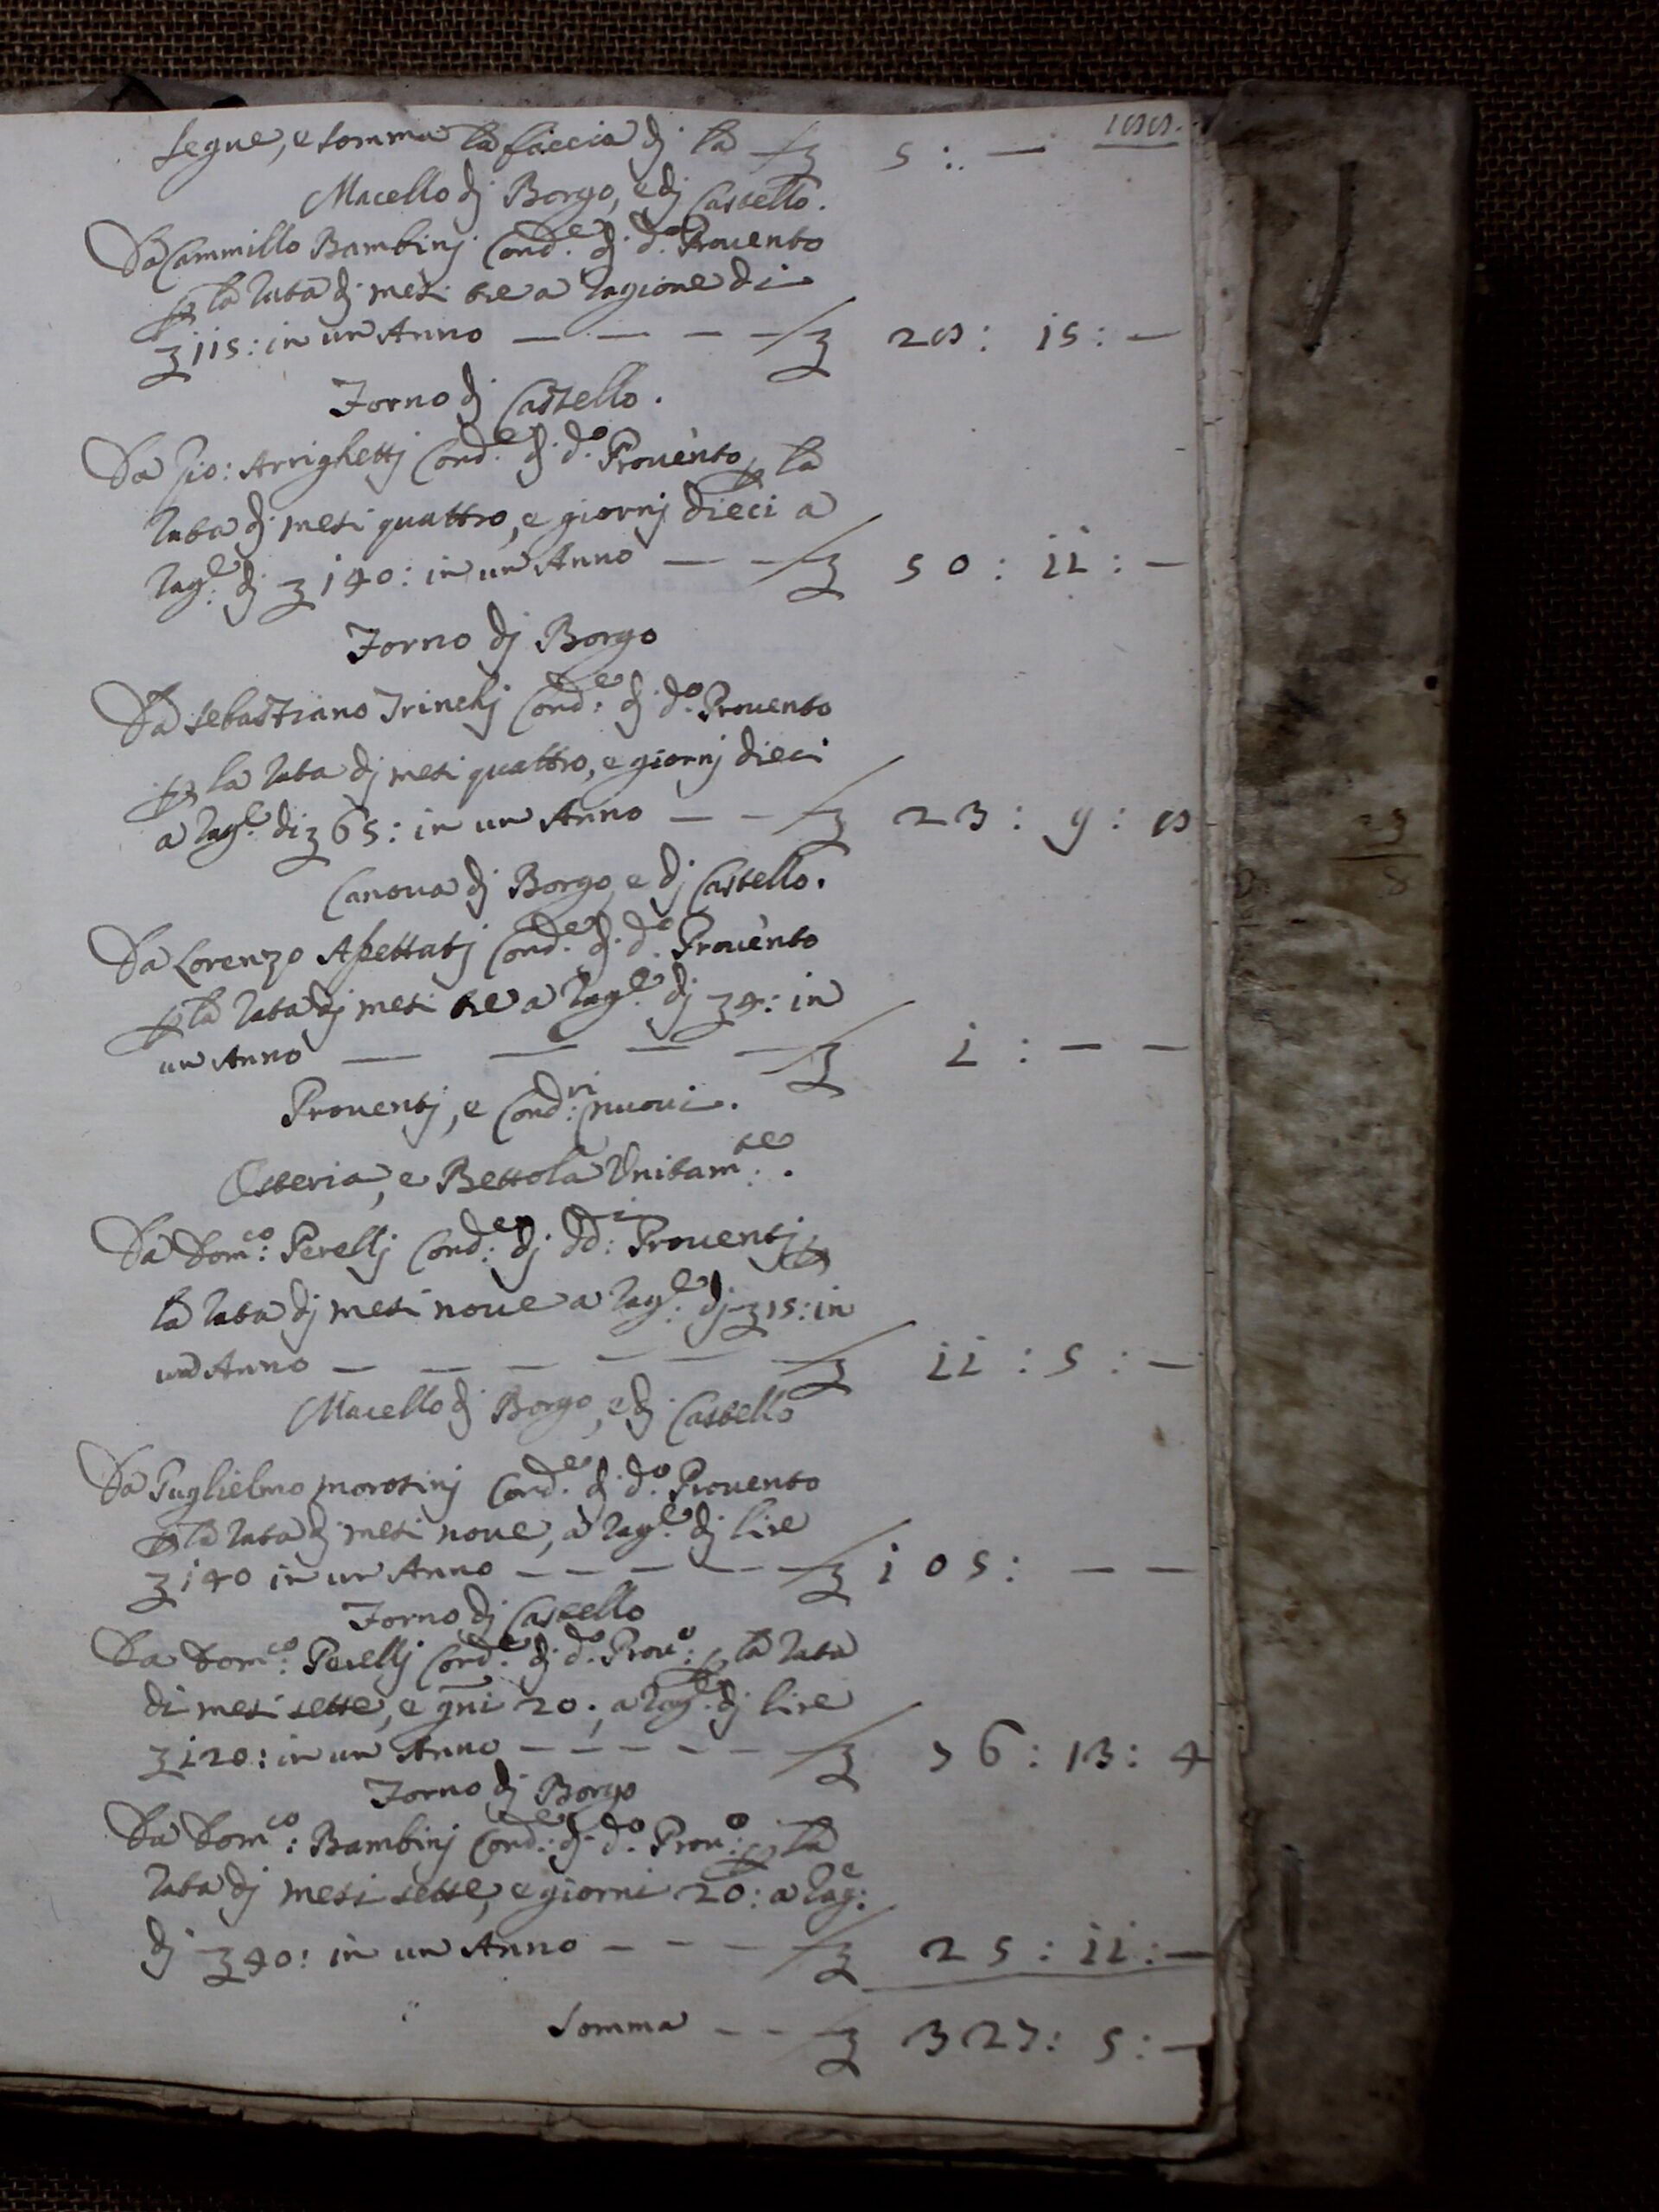 Segue, e somma la faccia dj là — £ 5 : — 188.
Macello dj Borgo, e dj Castello.
Da Cammillo Bambinj Cond.e dj d.o Prouento
p la rata dj mesi tre a ragione di
£ 115: in un Anno — — — — £ 28 : 15 : —
Forno dj Castello.
Da Gio: Arrighettj Cond.e dj d.o Prouento p la
rata dj mesi quattro, e giornj dieci a
rag.e dj £ 140: in un Anno — — £ 50 : 11 : —
Forno dj Borgo
Da Sebastiano Trinchj Cond.e dj d.o Prouento
p la rata dj mesi quattro, e giornj dieci
a rag.e di £ 65: in un Anno — — £ 23 : 9 : 8
Canoua dj Borgo, e dj Castello.
Da Lorenzo Aspettatj Cond.e dj d.o Prouento
p la rata dj mesi tre a rag.e dj £ 4: in
un Anno — — — — £ 1 : — —
Prouentj, e Cond.ri nuoui.
Osteria, e Bettola Unitam.te.
Da Dom.co: Perellj Cond.e dj dd.i Prouentj p
la rata dj mesi noue a rag.e dj £ 15: in
un Anno — — — — — — £ 11 : 5 : —
Macello dj Borgo, e dj Castello
Da Guglielmo Morosinj Cond.e dj d.o Prouento
p la rata dj mesi noue, a rag.e dj lire
£ 140 in un Anno — — — — — £ 105 : — —
Forno dj Castello
Da Dom.co: Perellj Cond.e dj d.o Prou.o: p la rata
di mesi sette, e gni 20., a rag.e dj lire
£ 120: in un Anno — — — — — £ 76 : 13 : 4
Forno dj Borgo
Da Dom.co: Bambinj Cond.e dj d.o Prou.o: p la
rata dj mesi sette, e giorni 20: a rag.e:
dj £ 40: in un Anno — — — — £ 25 : 11 : —
Somma — — £ 327 : 5 : —